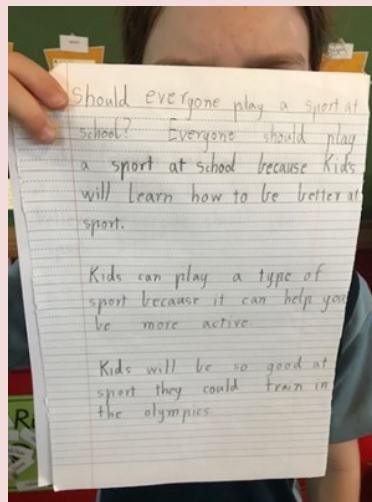 Should everyone play a sport at
school? Everyone should play
a sport at school because Kids
will Learn how to be better at
sport.
Kids can play a type of
sport because it can help you
be more active
Kids will be so good at
sport they could train in
the olympics.